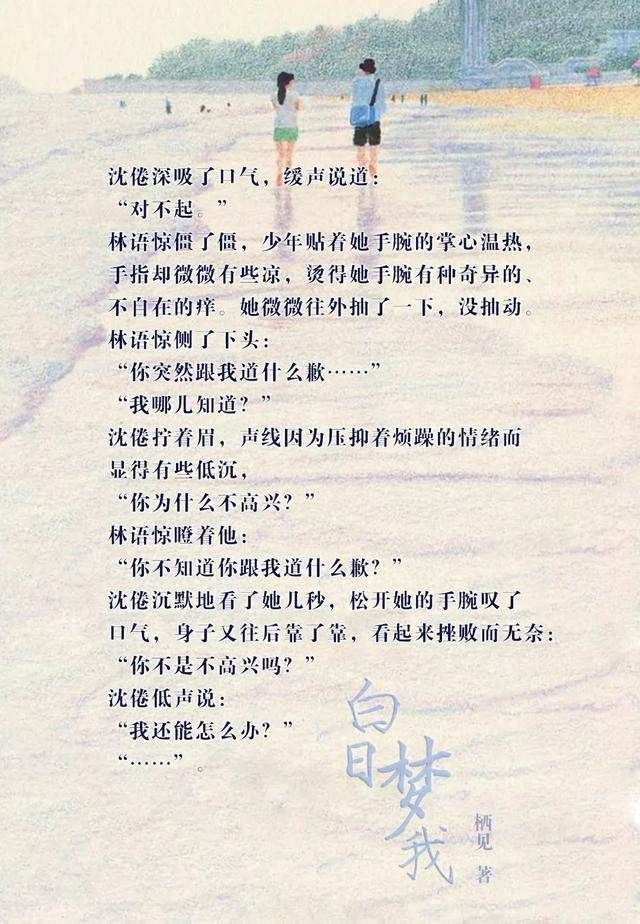 沈倦深吸了口气，缓声说道：
“对不起。”
林语惊僵了僵，少年贴着她手腕的掌心温热，
手指却微微有些凉，烫得她手腕有种奇异的、
不自在的痒。她微微往外抽了一下，没抽动。
林语惊侧了下头：
“你突然跟我道什么歉……”
“我哪儿知道？”
沈倦拧着眉，声线因为压抑着烦躁的情绪而
显得有些低沉，
“你为什么不高兴？”
林语惊瞪着他：
“你不知道你跟我道什么歉？”
沈倦沉默地看了她几秒，松开她的手腕叹了
口气，身子又往后靠了靠，看起来挫败而无奈：
“你不是不高兴吗？”
沈倦低声说：
“我还能怎么办？”
“……”。
白日梦我
栖见 著